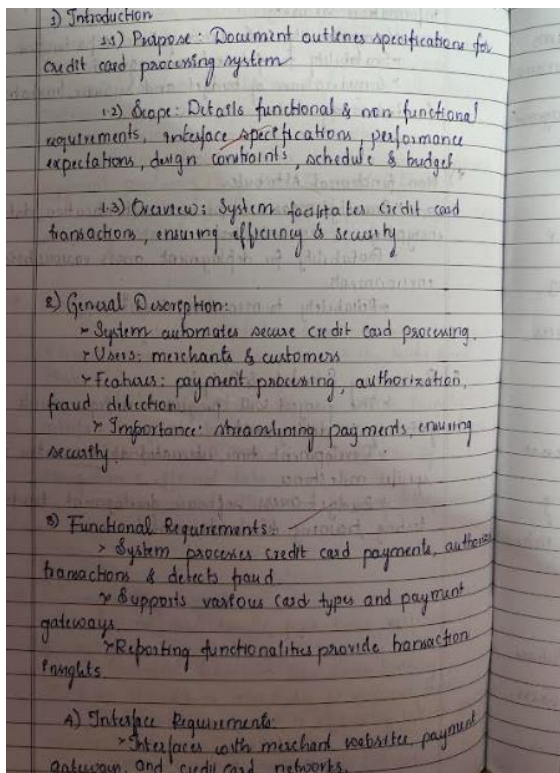 1) Introduction
1.1) Propose: Document outlines specifications for
credit card processing system
1.2) Scope: Details functional & non functional
requirements, interface specifications, performance
expectations, design constraints, schedule & budget
1.3) Overview: System facilitates credit card
transactions, ensuring efficiency & security
2) General Description:
> System automates secure credit card processing.
> Users: merchants & customers
> Features: payment processing, authorization,
fraud detection
> Importance: streamlining payments, ensuring
security.
3) Functional Requirements:
> System processes credit card payments, authorizes
transactions & detects fraud
> Supports various card types and payment
gateways
> Reporting functionalities provide transaction
insights
4) Interface Requirements:
> Interfaces with merchant websites, payment
gateways, and credit card networks.